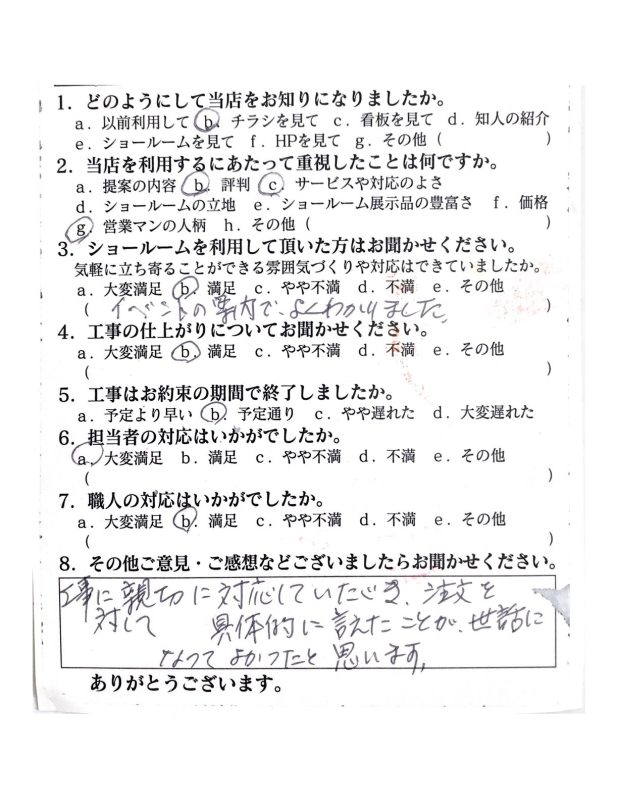 1．どのようにして当店をお知りになりましたか。
a．以前利用して b．チラシを見て c．看板を見て d．知人の紹介
e．ショールームを見て f．HPを見て g．その他（ ）
2．当店を利用するにあたって重視したことは何ですか。
a．提案の内容 b．評判 c．サービスや対応のよさ
d．ショールームの立地 e．ショールーム展示品の豊富さ f．価格
g．営業マンの人柄 h．その他（ ）
3．ショールームを利用して頂いた方はお聞かせください。
気軽に立ち寄ることができる雰囲気づくりや対応はできていましたか。
a．大変満足 b．満足 c．やや不満 d．不満 e．その他
（ イベントの案内で、よくわかりました。
4．工事の仕上がりについてお聞かせください。
a．大変満足 b．満足 c．やや不満 d．不満 e．その他
（ ）
5．工事はお約束の期間で終了しましたか。
a．予定より早い b．予定通り c．やや遅れた d．大変遅れた
6．担当者の対応はいかがでしたか。
a．大変満足 b．満足 c．やや不満 d．不満 e．その他
（ ）
7．職人の対応はいかがでしたか。
a．大変満足 b．満足 c．やや不満 d．不満 e．その他
（ ）
8．その他ご意見・ご感想などございましたらお聞かせください。
工事に親切に対応していただき、注文を
対して 具体的に言えたことが、世話に
なってよかったと思います。
ありがとうございます。